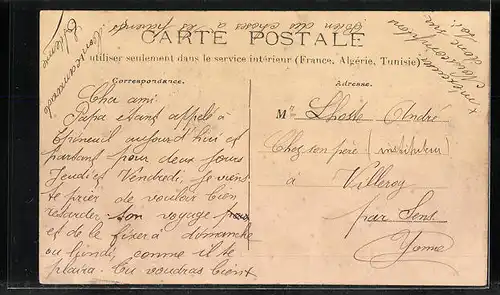 Bien des choses à tes parents
CARTE POSTALE
A utiliser seulement dans le service intérieur (France, Algérie, Tunisie)
Correspondance.
Adresse.
Cher ami
Papa étant appelé à
Epineuil aujourd'hui et
partant pour deux jours
Jeudi et Vendredi, je viens
te prier de vouloir bien
retarder ton voyage
et de le fixer à dimanche
ou lundi, comme il te
plaira. Tu voudras bien
Mr Lhoste André
Chez son père (instituteur)
à Villeroy
par Sens
Yonne